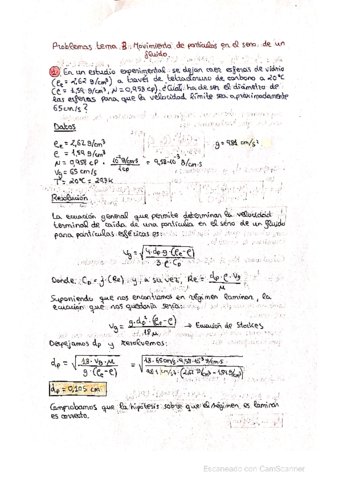 Problemas tema 3: Movimiento de partículas en el seno de un
fluido.
① En un estudio experimental se dejan caer esferas de vidrio
(ρe = 2,62 g/cm³) a través de tetracloruro de carbono a 20ºC
(ρ = 1,59 g/cm³, μ = 0,958 cp). ¿Cuál ha de ser el diámetro de
las esferas para que la velocidad límite sea aproximadamente
65 cm/s?
Datos
ρe = 2,62 g/cm³ g = 981 cm/s²
ρ = 1,59 g/cm³
μ = 0,958 cp · 10⁻² g/cm·s / 1 cp = 9,58·10⁻³ g/cm·s
Vg = 65 cm/s
T = 20ºC = 293 K
Resolución
La ecuación general que permite determinar la velocidad
terminal de caída de una partícula en el seno de un fluido
para partículas esféricas es:
Vg = √(4·dp·g·(ρe-ρ) / 3·ρ·CD)
Donde CD = f(Re) y, a su vez, Re = dp·ρ·Vg / μ
Suponiendo que nos encontramos en régimen laminar, la
ecuación que nos quedaría sería:
Vg = g·dp²·(ρe-ρ) / 18μ → Ecuación de Stockes
Despejamos dp y resolvemos:
dp = √(18·Vg·μ / g·(ρe-ρ)) = √(18·65 cm/s·9,58·10⁻³ g/cm·s / 981 cm/s²·(2,62 g/cm³-1,59 g/cm³))
dp = 0,105 cm
Comprobamos que la hipótesis sobre que el régimen es laminar
es correcta.
Escaneado con CamScanner